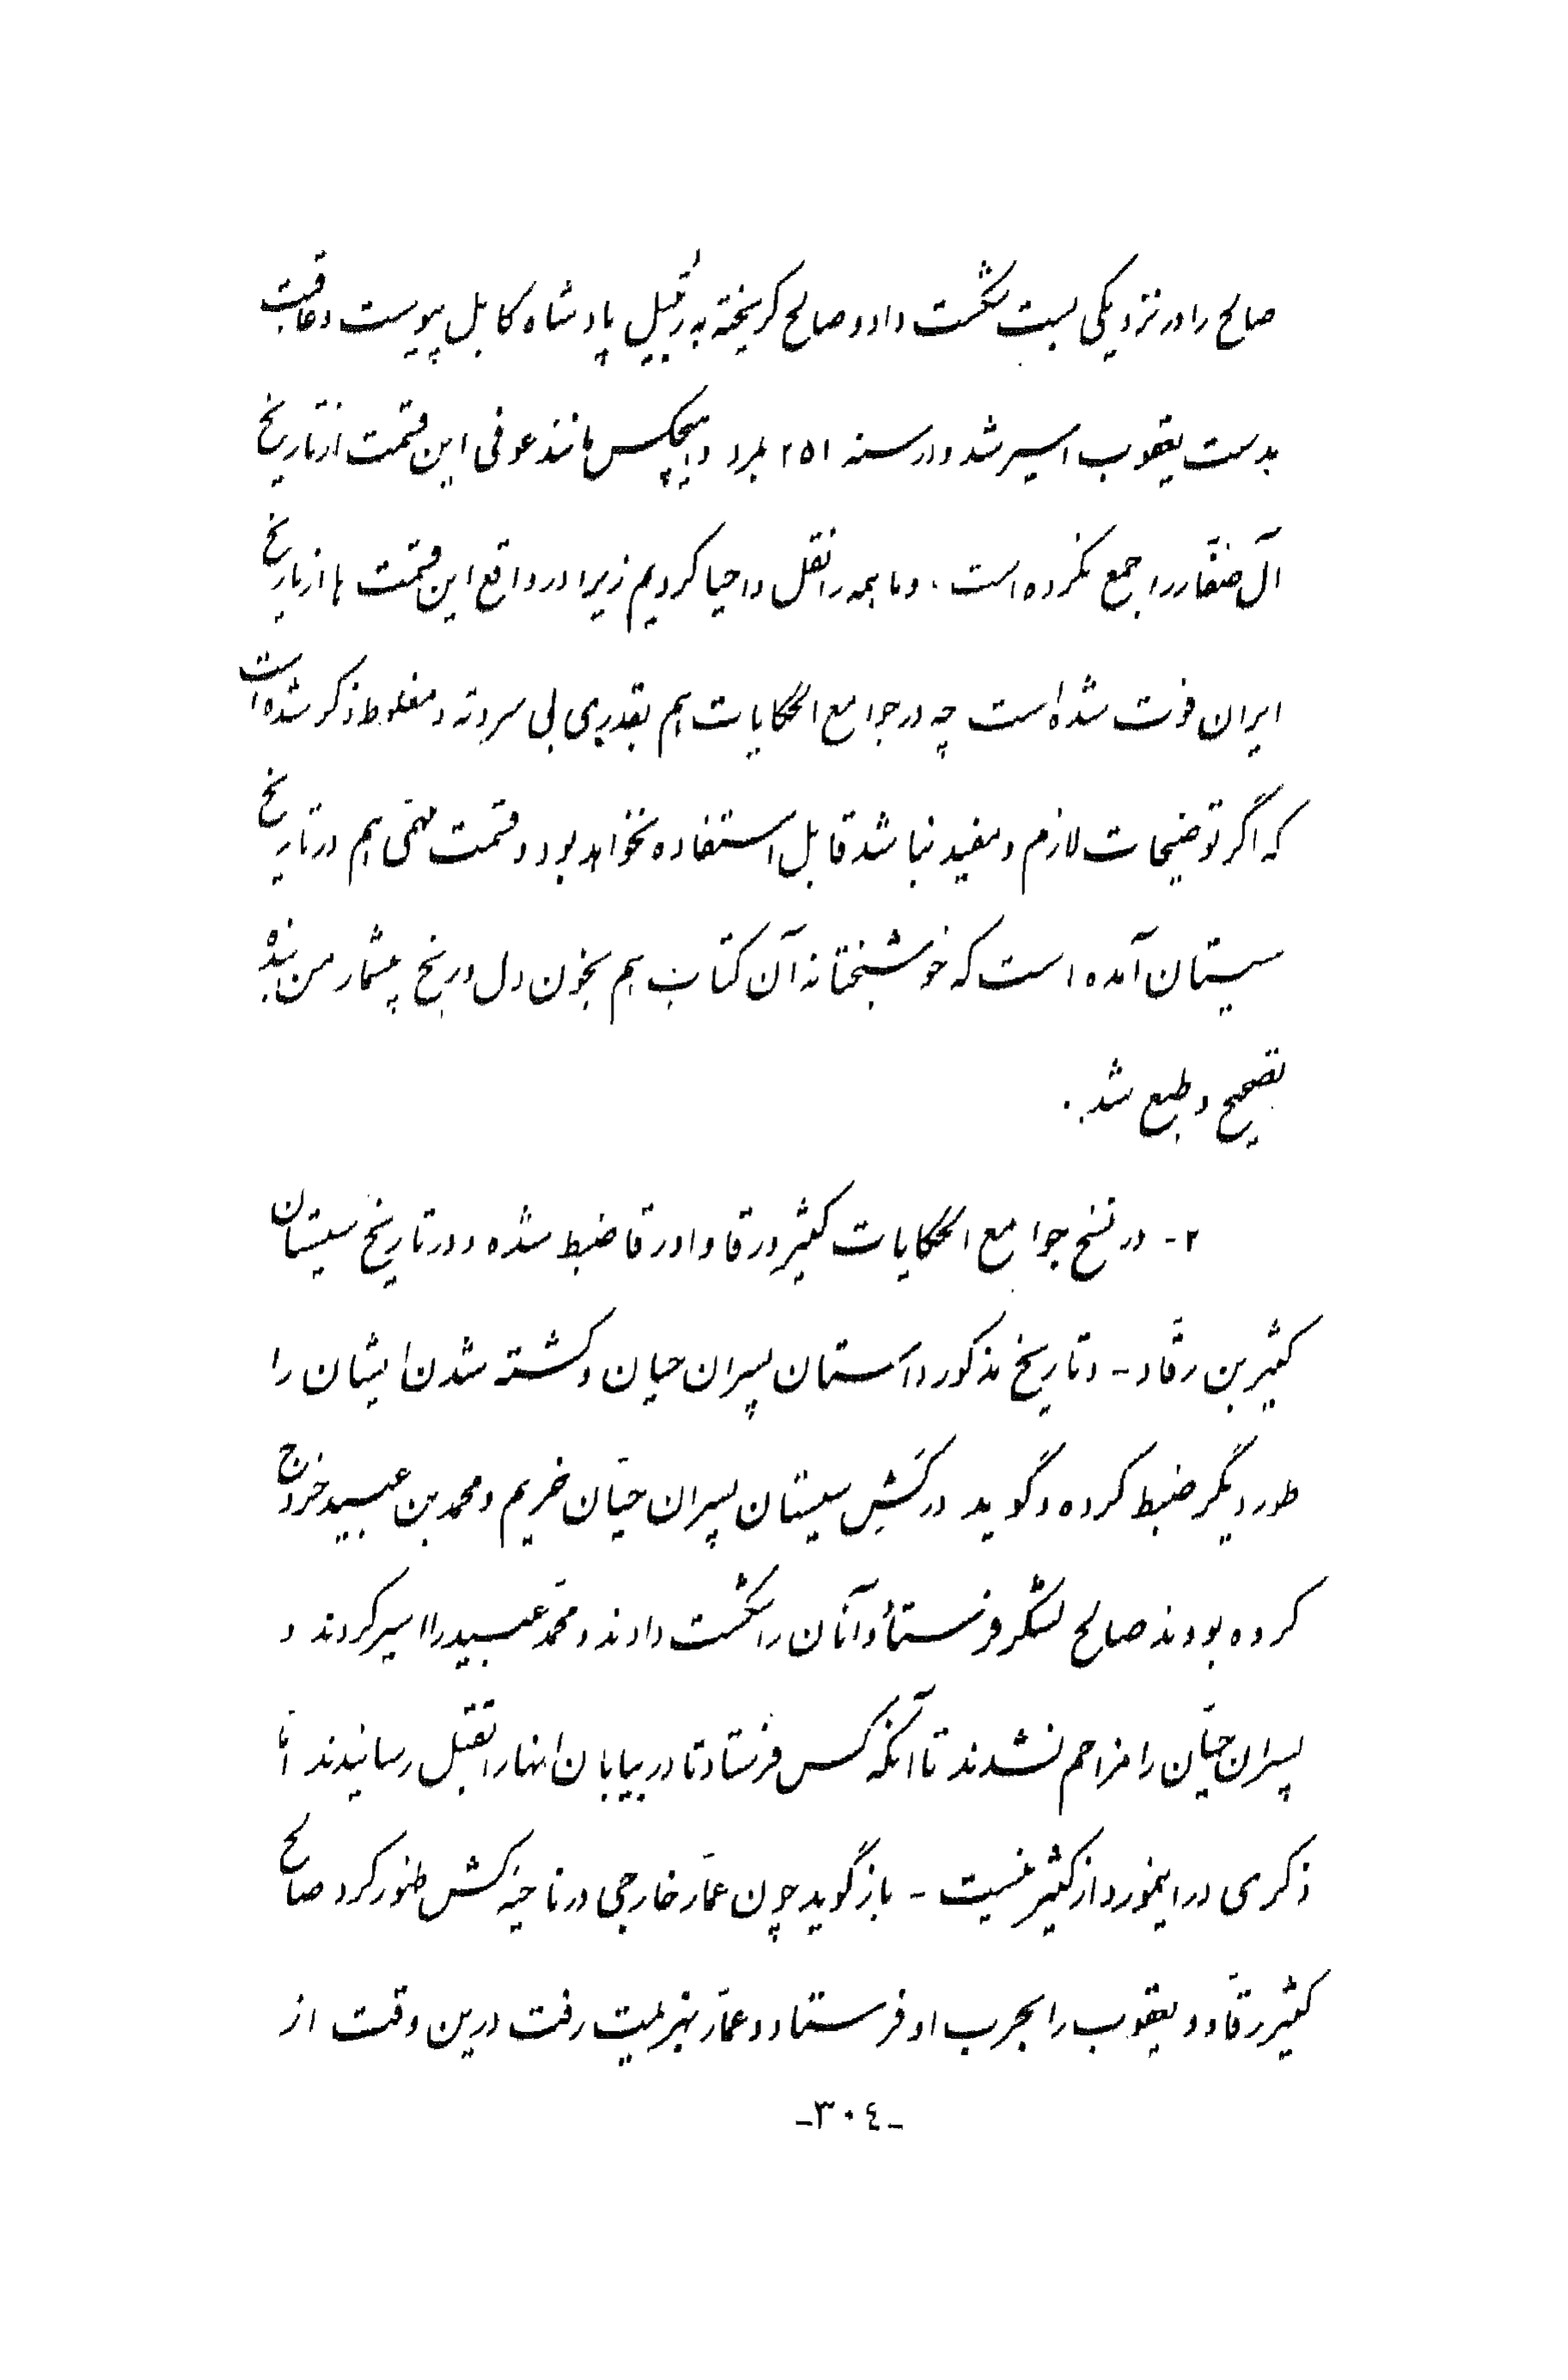 صالح را در نزدیکی بست شکست داد و صالح گریخته به رتبیل پادشاه کابل پیوست و عاقبت
بدست یعقوب اسیر شد و در سنه ۲۵۱ بمرد و هیچکس مانند عوفی این قسمت از تاریخ
آل صفّار را جمع نکرده است، و ما همه را نقل و احیا کردیم زیرا در واقع این قسمت ها از تاریخ
ایران فوت شده است چه در جوامع الحکایات هم بقدری بی سر و ته و مغلوط ذکر شده است
که اگر توضیحات لازم و مفید نباشد قابل استفاده نخواهد بود و قسمت مهمّی هم در تاریخ
سیستان آمده است که خوشبختانه آن کتاب هم بخون دل و رنج بیشمار من بنده
تصحیح و طبع شد.
۲- در نسخ جوامع الحکایات کثیر ورقا و اورقا ضبط شده و در تاریخ سیستان
کثیر بن رقّاد - و تاریخ مذکور داستان پسران حیان و کشته شدن ایشان را
طور دیگر ضبط کرده و گوید در کَشِ سیستان پسران حیّان خریم و محمد بن عبید خروج
کرده بودند صالح لشگر فرستاد و آنان را شکست دادند و محمّد عبید را اسیر کردند و
پسران حیّان را مزاحم نشدند تا آنکه کس فرستاد تا در بیابان اینها را بقتل رسانیدند امّا
ذکری در اینمورد از کثیر نیست - باز گوید چون عمّار خارجی در ناحیهٔ کش ظهور کرد صالح
کثیر رقّاد و یعقوب را بحرب او فرستاد و عمّار بهزیمت رفت درین وقت از
-۳۰٤-